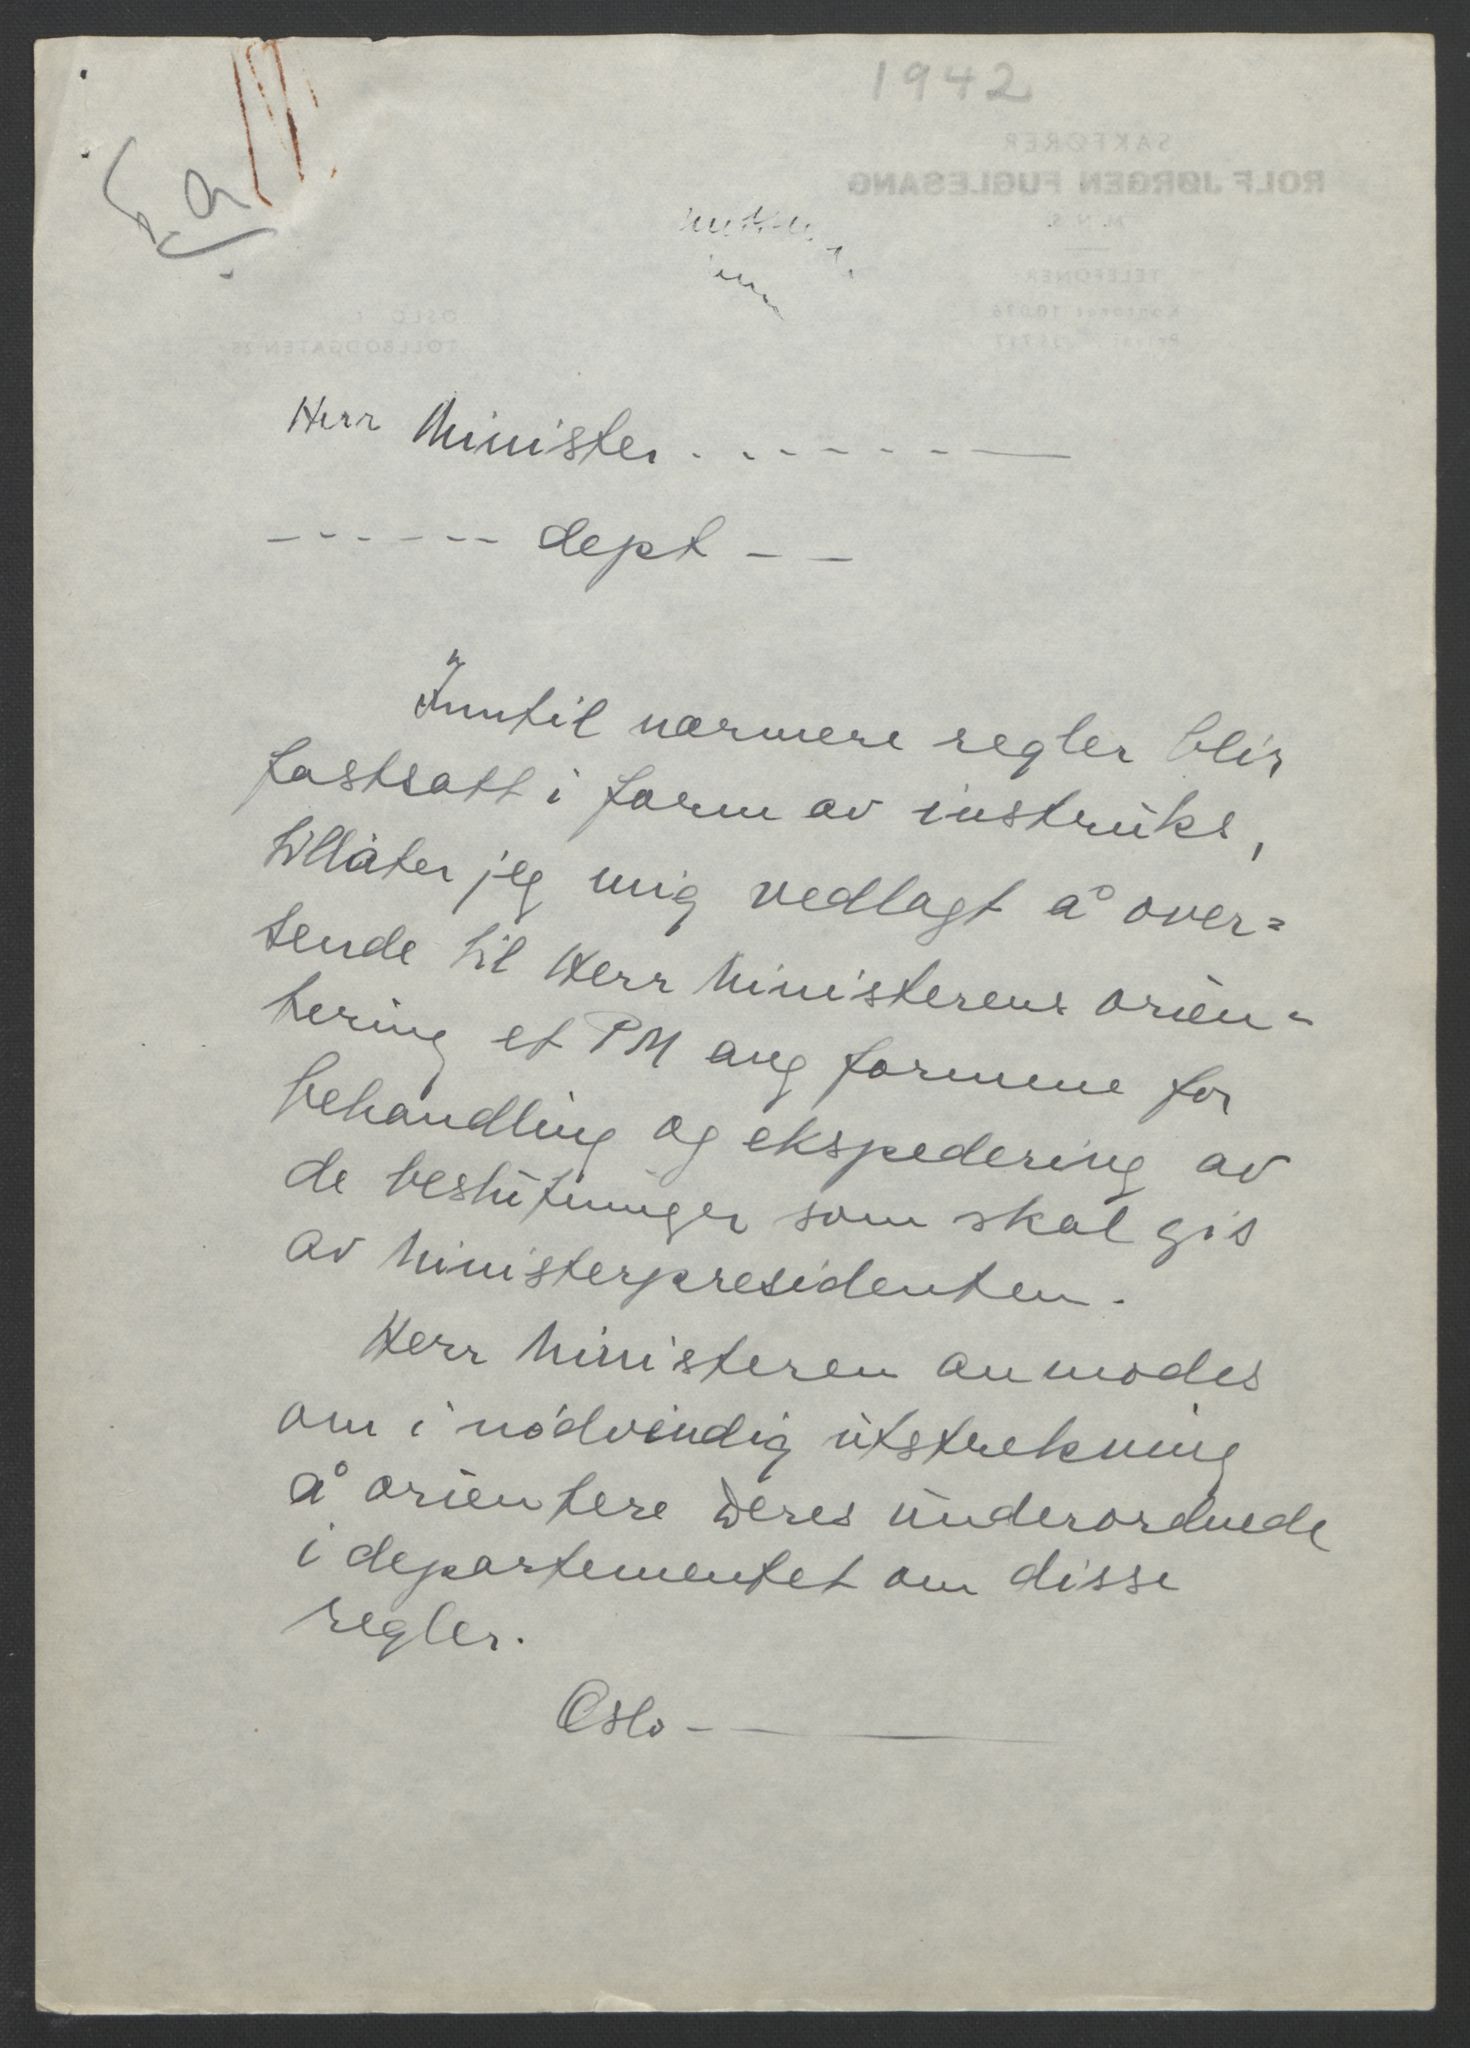 1942
SAKFØRER
ROLF JØRGEN FUGLESANG
M. N. S.
TELEFONER
OSLO
TOLLBODGATEN
Herr Minister . . - - - - - —
- - - - - - dept - -
Inntil nærmere regler blir
fastsatt i form av instruks,
tillater jeg mig vedlagt å over=
sende til Herr Ministerens orien-
tering et PM ang formene for
behandling og ekspedering av
de beslutninger som skal gis
av Ministerpresidenten.
Herr Ministeren anmodes
om i nödvendig utstrekning
å orientere Deres underordnede
i departementet om disse
regler.
Oslo - —